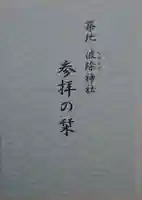 築地 波除神社
参拝の栞